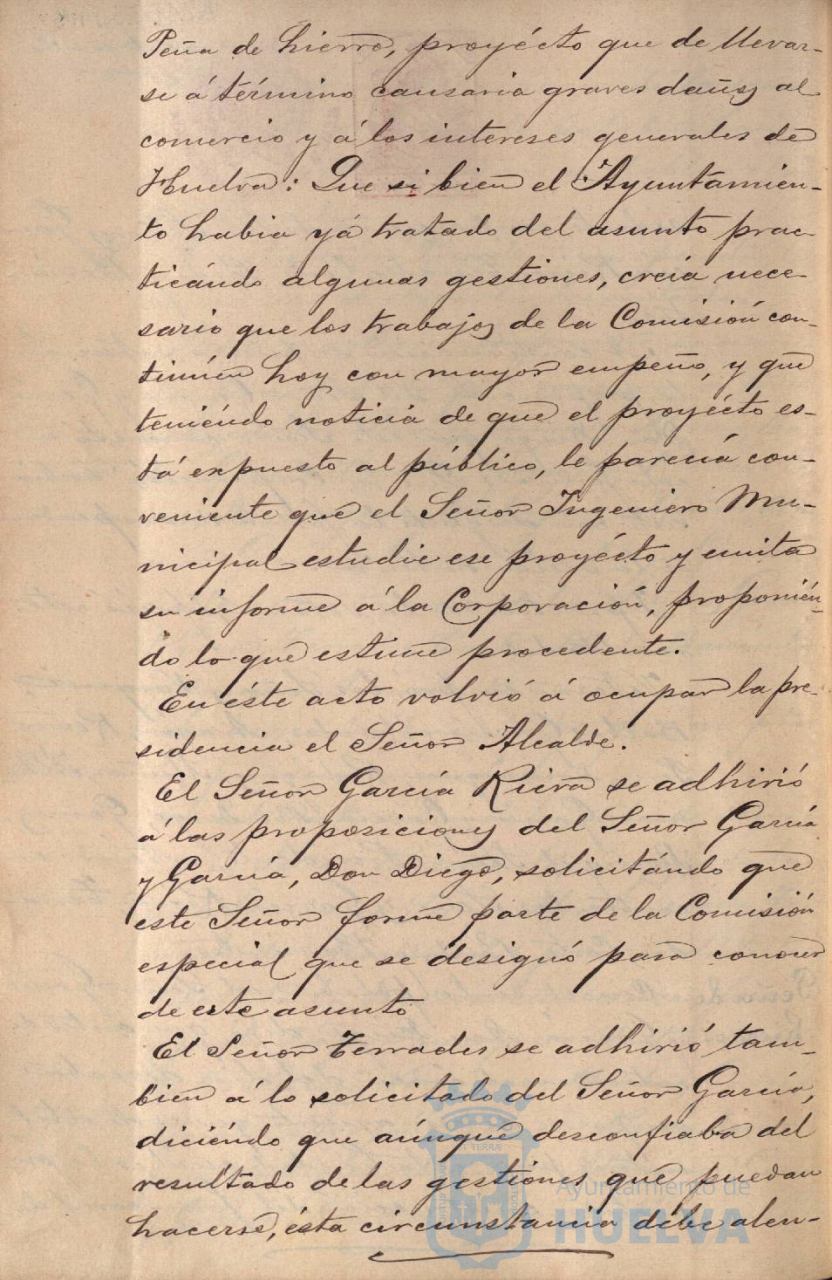 Peña de hierro, proyécto que de llevar-
se á término causaria graves daños al
comercio y á los intereses generales de
Huelva: Que si bien el Ayuntamien-
to habia yá tratado del asunto prac-
ticándo algunas gestiones, creia nece-
sario que los trabajos de la Comisión con-
tinúen hoy con mayor empeño, y que
teniéndo noticia de que el proyécto es-
tá expuesto al público, le parecia con-
veniente que el Señor Ingeniero Mu-
nicipal estudie ese proyécto y emita
su informe á la Corporación, proponién-
do lo que estime procedente.
En éste acto volvió á ocupar la pre-
sidencia el Señor Alcalde.
El Señor García Riera se adhirió
á las proposiciones del Señor García
y García, Don Diego, solicitándo que
este Señor forme parte de la Comisión
especial que se designó para conocer
de este asunto
El Señor Terrades se adhirió tam-
bien á lo solicitado del Señor García,
diciéndo que aúnque desconfiaba del
resultado de las gestiones que puedan
hacerse, ésta circunstancia débe alen-
Ayuntamiento de
HUELVA